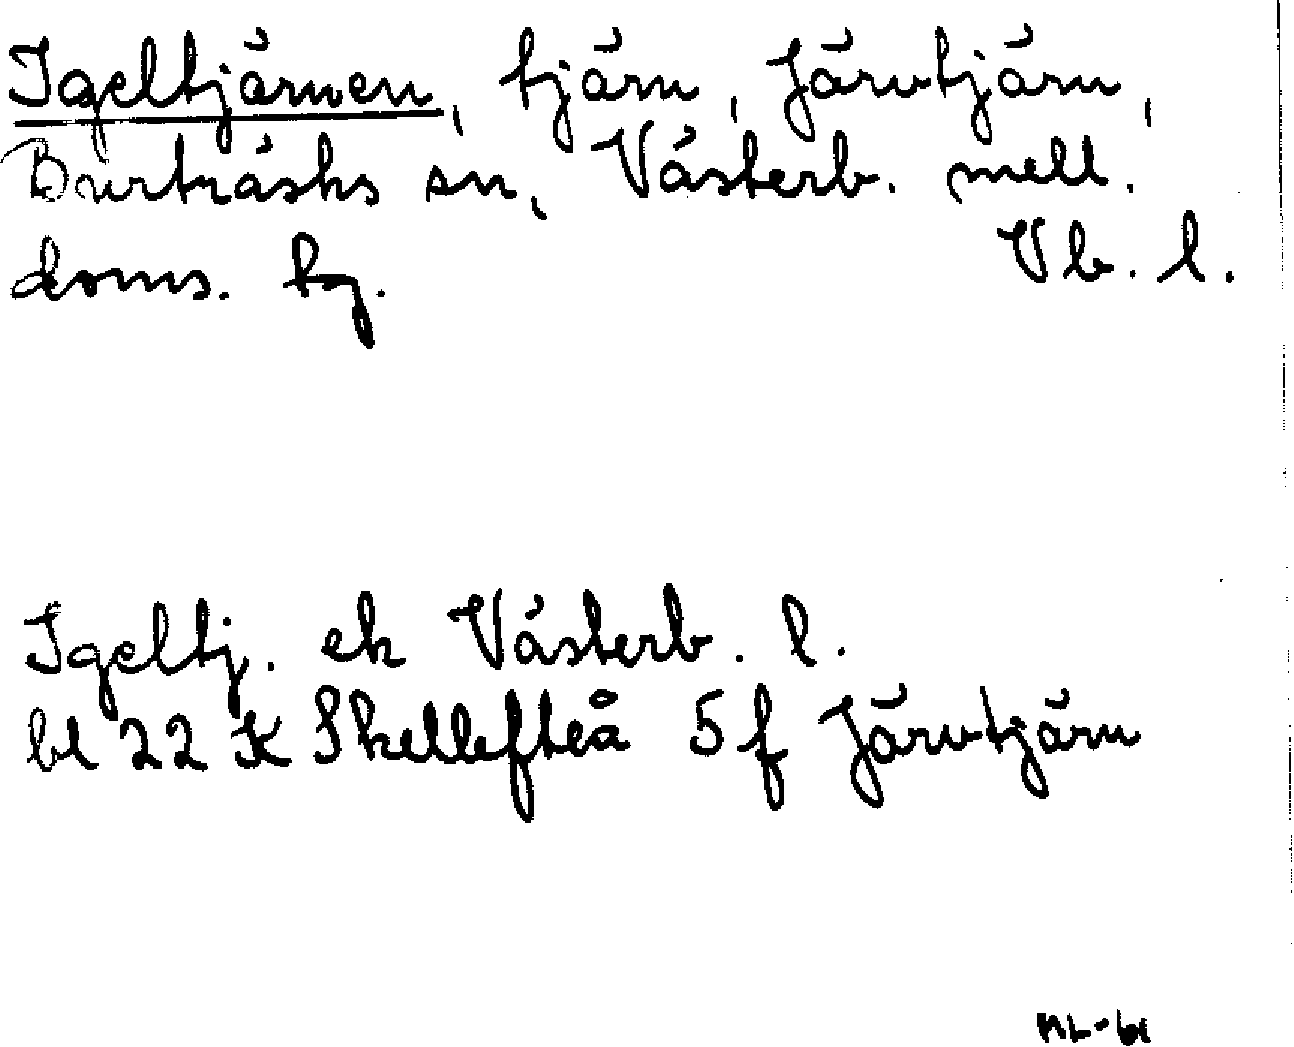 Igeltjärnen, tjärn, Järvtjärn,
Burträsks sn, Västerb. mell.
doms. hg. Vb. l.
Igeltj. ek Västerb. l.
bl 22 K Skellefteå 5 f Järvtjärn
ML-61